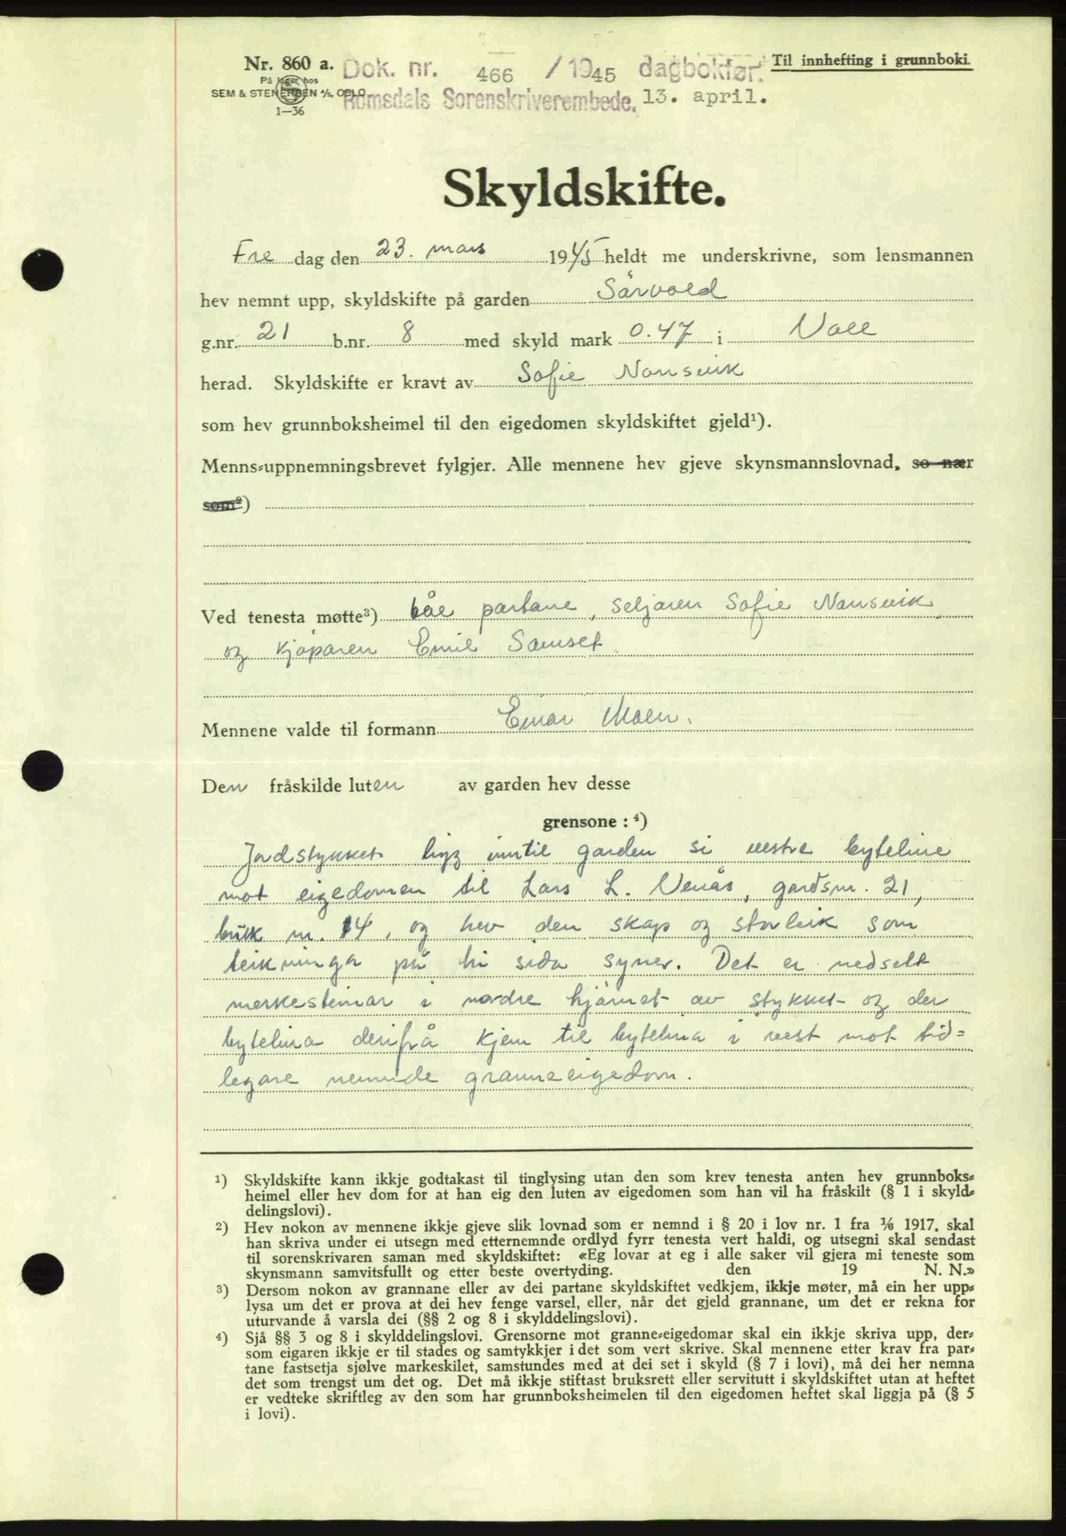 Nr. 860 a.
På lager hos
SEM & STENERSEN A/S. OSLO
1—36
Dok. nr. 466 / 1945 dagbokført
Romsdals Sorenskriverembede. 13. april.
Til innhefting i grunnboki.
Skyldskifte.
Fre dag den 23. mars 1945 heldt me underskrivne, som lensmannen
hev nemnt upp, skyldskifte på garden Sørvold
g.nr. 21 b.nr. 8 med skyld mark 0.47 i Voll
herad. Skyldskifte er kravt av Sofie Nonsvik
som hev grunnboksheimel til den eigedomen skyldskiftet gjeld¹).
Menns-uppnemningsbrevet fylgjer. Alle mennene hev gjeve skynsmannslovnad, so nær
som²)
Ved tenesta møtte³) båe partane, seljaren Sofie Nonsvik
og kjøparen Emil Samset
Mennene valde til formann Einar Moen.
Den fråskilde luten av garden hev desse
grensone : ⁴)
Jordstykket ligg inntil garden si vestre byteline
mot eigedomen til Lars L. Venås, gardsnr. 21,
bruk nr. 14, og hev den skap og storleik som
teikninga på hi sida syner. Det er nedsett
merkesteinar i nordre hjørnet av stykket og der
bytelina derifrå kjem til bytelina i vest mot tid=
legare nemnde granneeigedom.
¹) Skyldskifte kann ikkje godtakast til tinglysing utan den som krev tenesta anten hev grunnboks-
heimel eller hev dom for at han eig den luten av eigedomen som han vil ha fråskilt (§ 1 i skyld-
delingslovi).
²) Hev nokon av mennene ikkje gjeve slik lovnad som er nemnd i § 20 i lov nr. 1 fra 1/6 1917, skal
han skriva under ei utsegn med etternemnde ordlyd fyrr tenesta vert haldi, og utsegni skal sendast
til sorenskrivaren saman med skyldskiftet: «Eg lovar at eg i alle saker vil gjera mi teneste som
skynsmann samvitsfullt og etter beste overtyding. den 19 N. N.»
³) Dersom nokon av grannane eller av dei partane skyldskiftet vedkjem, ikkje møter, må ein her upp-
lysa um det er prova at dei hev fenge varsel, eller, når det gjeld grannane, um det er rekna for
uturvande å varsla dei (§§ 2 og 8 i skylddelingslovi).
⁴) Sjå §§ 3 og 8 i skylddelingslovi. Grensorne mot granne-eigedomar skal ein ikkje skriva upp, der-
som eigaren ikkje er til stades og samtykkjer i det som vert skrive. Skal mennene etter krav fra par-
tane fastsetja sjølve markeskilet, samstundes med at dei set i skyld (§ 7 i lovi), må dei her nemna
det som trengst um det og. Det må ikkje stiftast bruksrett eller servitutt i skyldskiftet utan at heftet
er vedteke skriftleg av den som har grunnboksheimelen til den eigedomen heftet skal liggja på (§ 5
i lovi).